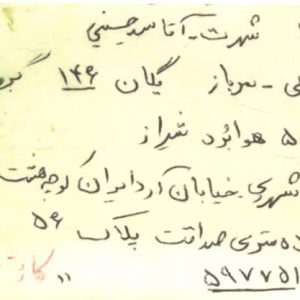 شهرت - آقا سید حسینی
سرباز یگان ۱۴۶
۵ هوابرد شیراز
شهری خیابان آرد ایران کوچه هشت
متری صداقت پلاک ۵۶
۵۹۷۷۵۱